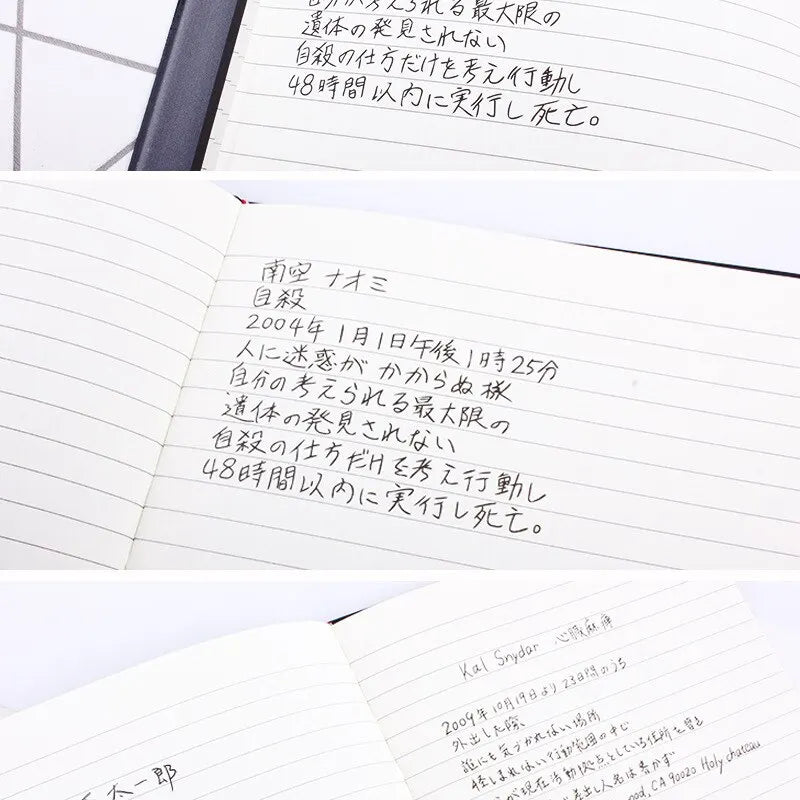 自分が考えられる最大限の
遺体の発見されない
自殺の仕方だけを考え行動し
48時間以内に実行し死亡。
南空 ナオミ
自殺
2004年1月1日午後1時25分
人に迷惑がかからぬ様
自分の考えられる最大限の
遺体の発見されない
自殺の仕方だけを考え行動し
48時間以内に実行し死亡。
太一郎
Kal Snydar 心臓麻痺
2009年10月19日より23日間のうち
外出した際、
誰にも気づかれない場所
怪しまれない行動範囲の中で
が現在活動拠点としている住所を書き
差出し人名は書かず
CA 90020 Holy chateau